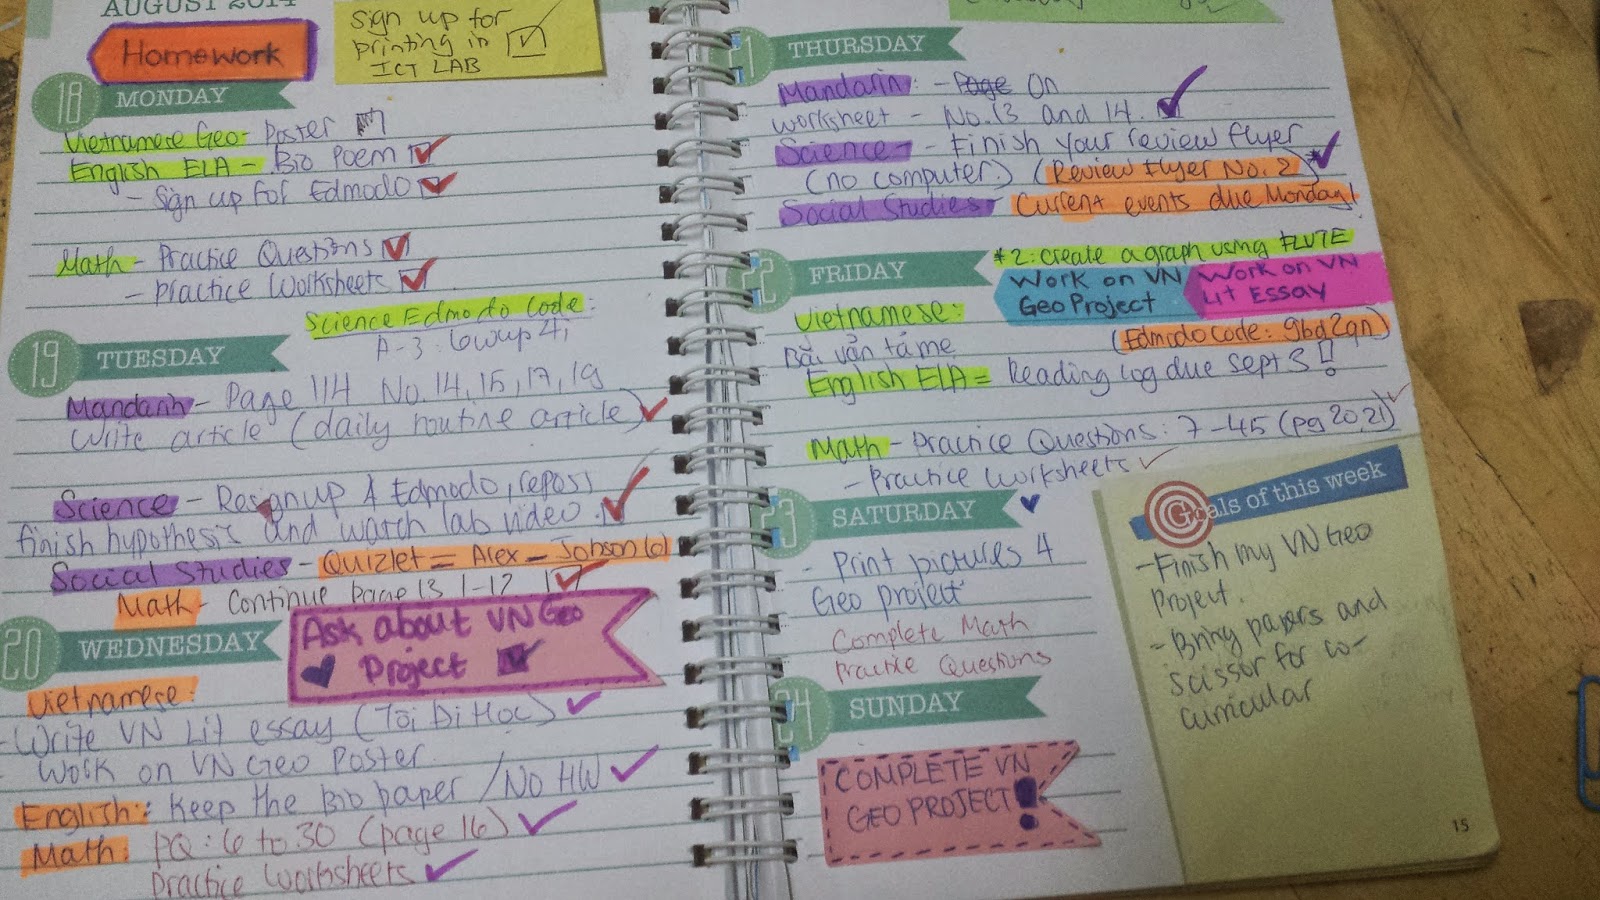 AUGUST 2014
Homework
sign up for
printing in
ICT LAB
18 MONDAY
Vietnamese Geo- Poster
English ELA - Bio Poem
- Sign up for Edmodo
Math - Practice Questions
- Practice Worksheets
Science Edmodo Code:
A-3: 6wup4i
19 TUESDAY
Mandarin - Page 114 No. 14, 15, 17, 19
Write article (daily routine article)
Science - Resign up 4 Edmodo, repost
finish hypothesis and watch lab video.
Social Studies - Quizlet = Alex - Jobson(0)
Math - Continue page 13 1-12
20 WEDNESDAY
Ask about VN Geo
Project
Vietnamese:
- Write VN Lit essay (Tôi Đi Học)
- Work on VN Geo Poster.
English: Keep the Bio paper / No HW
Math: PQ: 6 to 30 (page 16)
Practice Worksheets
21 THURSDAY
Mandarin: - Page On
worksheet - No. 13 and 14.
Science - Finish your review flyer
(no computer.) (Review Flyer No. 2)
Social Studies - Current events due Monday!
*2: create a graph using FLUTE
22 FRIDAY
Work on VN
Geo Project
Work on VN
Lit Essay
Vietnamese:
(Edmodo Code: gbq2qn)
Bài văn tả mẹ
English ELA = Reading log due Sept 3!!
Math - Practice Questions: 7-45 (pg 20,21)
- Practice Worksheets
23 SATURDAY
- Print pictures 4
Geo project
Complete Math
Practice Questions
24 SUNDAY
COMPLETE VN
GEO PROJECT!
Goals of this week
- Finish my VN Geo
Project.
- Bring papers and
scissor for co-
curricular
15